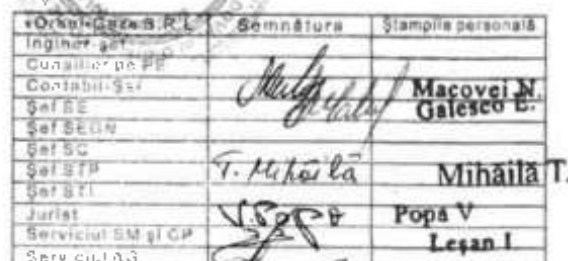 «Orhei-Gaz» S.R.L. Semnătura Ștampila personală
Inginer-șef
Consilier pe PE
Contabil-Șef Macovei N.
Șef SE Galesco E.
Șef SEGN
Șef SC
Șef STP T. Mihăilă Mihăilă T.
Șef STI
Jurist V. Popa Popa V
Serviciul SM și CP Leșan I.
Serviciul